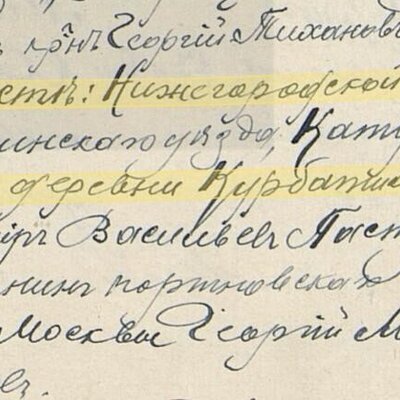 крⷭ҇нъ Георгій Тихановъ
стъ: Нижегородской
инскаго уѣзда, Кат
деревни Курбати
ѳіръ Васильевъ Паст
нинъ портновскаго
Москвы Георгій М
евъ.